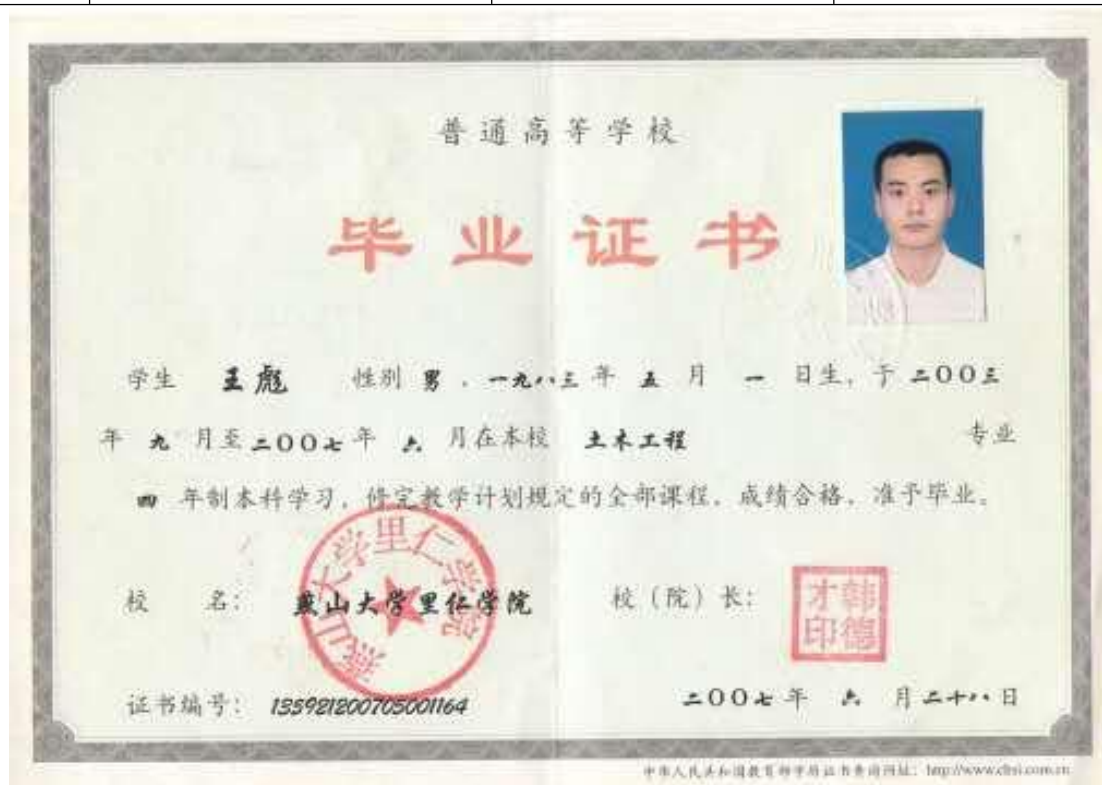 普通高等学校
毕业证书
学生 王彪 性别 男，一九八三年 五 月 一 日生，于 二〇〇三
年 九 月至 二〇〇七 年 六 月在本校 土木工程 专业
四 年制本科学习，修完教学计划规定的全部课程，成绩合格，准予毕业。
校 名： 燕山大学里仁学院 校（院）长：
燕山大学里仁学院
韩德才印
证书编号： 135921200705001164 二〇〇七年 六 月二十八日
中华人民共和国教育部学历证书查询网址： http://www.chsi.com.cn